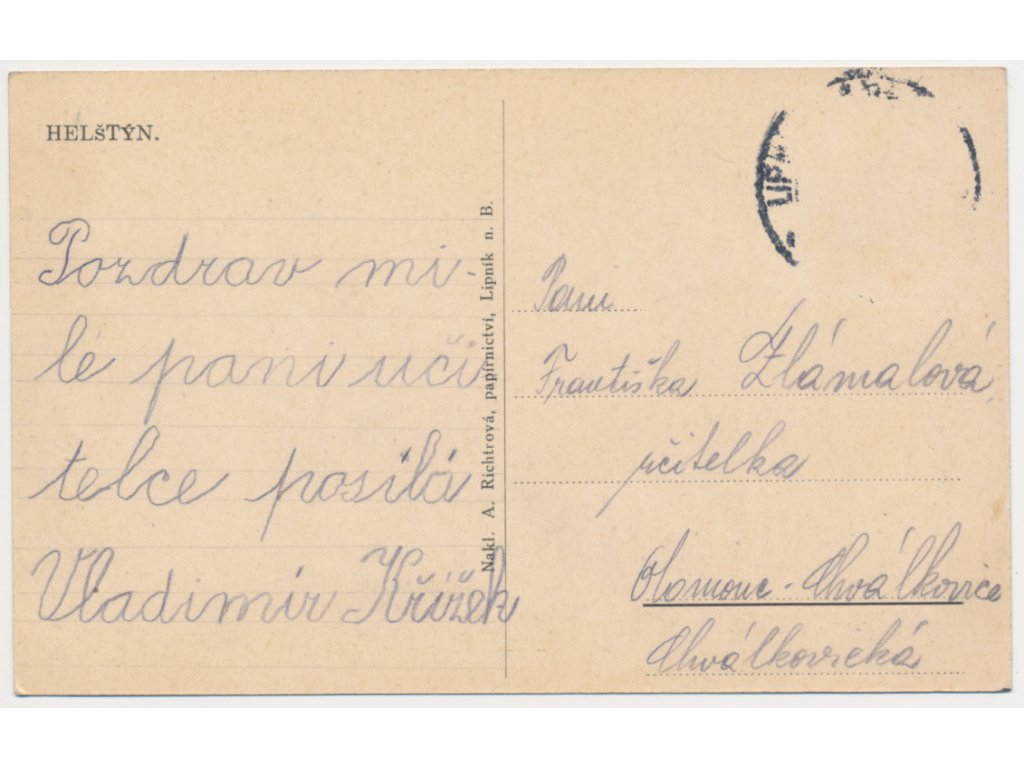 HELŠTÝN.
Pozdrav mi-
lé paní uči
telce posílá
Vladimír Křížek
Nakl. A. Richtrová, papírnictví, Lipník n. B.
LIPN
Paní
Františka Zlámalová,
učitelka
Olomouc - Chválkovice
Chválkovická